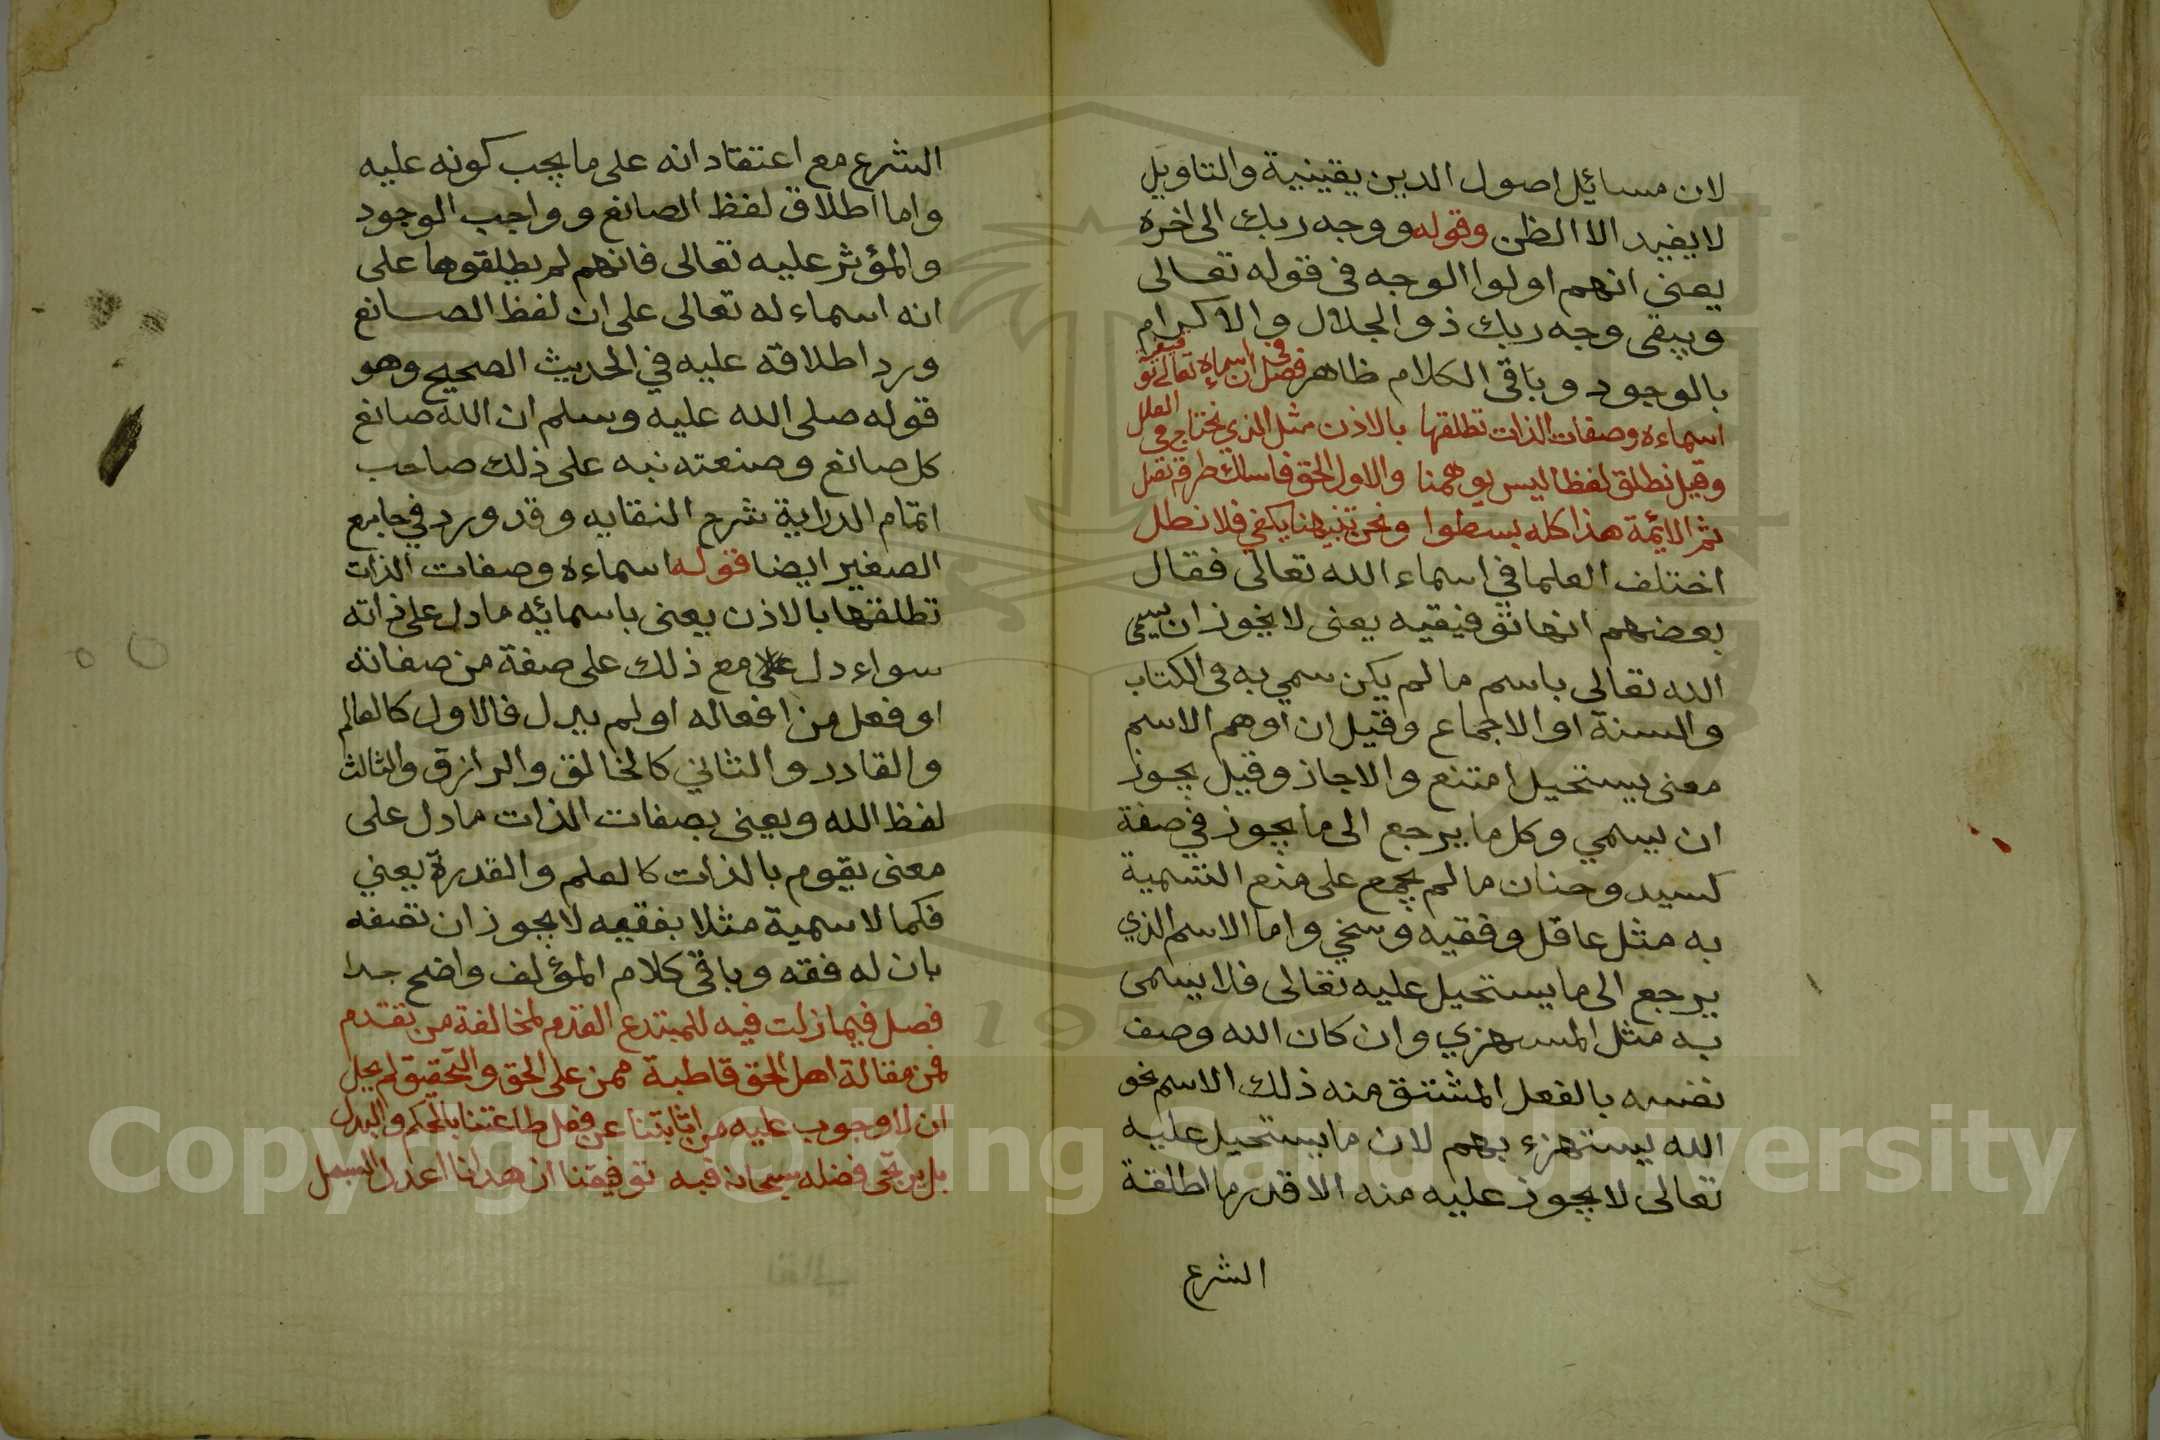 لان مسائل اصول الدين يقينية والتاويل
لا يفيد الا الظن وقوله ووجه ربك الى اخره
يعني انهم اولوا الوجه فى قوله تعالى
ويبقى وجه ربك ذو الجلال والاكرام
بالوجود وباقى الكلام ظاهر فصل في ان اسماءه تعالى توقيفية
اسماءه وصفات الذات تطلقها بالاذن مثل الذي نحتاج في العلل
وقيل نطلق لفظا ليس يوهمنا والاول الحق فاسلك طرقه تصل
ثم الائمة هذا كله بسطوا ونحن تنبيهنا يكفي فلا نطل
اختلف العلما في اسماء الله تعالى فقال
بعضهم انها توفيقيه يعنى لا يجوز ان يسمى
الله تعالى باسم ما لم يكن سمي به فى الكتاب
والسنة او الاجماع وقيل ان اوهم الاسم
معنى يستحيل امتنع والا جاز وقيل يجوز
ان يسمي وكل ما يرجع الى ما يجوز في صفة
كسيد وحنان ما لم يجمع على منع التسمية
به مثل عاقل وفقيه وسخي واما الاسم الذي
يرجع الى ما يستحيل عليه تعالى فلا يسمى
به مثل المستهزي وان كان الله وصف
نفسه بالفعل المشتق منه ذلك الاسم نحو
الله يستهزء بهم لان ما يستحيل عليه
تعالى لا يجوز عليه منه الا قدر ما اطلقة
الشرع
الشرع مع اعتقاد انه على ما يجب كونه عليه
واما اطلاق لفظ الصانع وواجب الوجود
والمؤثر عليه تعالى فانهم لم يطلقوها على
انه اسماء له تعالى على ان لفظ الصانع
ورد اطلاقه عليه في الحديث الصحيح وهو
قوله صلى الله عليه وسلم ان الله صانع
كل صانع وصنعته نبه على ذلك صاحب
اتمام الدراية شرح النقايه وقد ورد في جامع
الصغير ايضا فقوله اسماءه وصفات الذات
تطلقها بالاذن يعنى باسمائه ما دل على ذاته
سواء دل مع ذلك على صفة من صفاته
او فعل من افعاله او لم يدل فالاول كالعالم
والقادر والثاني كالخالق والرازق والثالث
لفظ الله ويعنى بصفات الذات ما دل على
معنى يقوم بالذات كالعلم والقدرة يعني
فكما لا سمية مثلا بفقيه لا يجوز ان تصفه
بان له فقه وباقى كلام المؤلف واضح جدا
فصل فيما زلت فيه للمبتدع القدم لمخالفة من تقدم
فمن مقالة اهل الحق قاطبة ممن على الحق والتحقيق لم يحل
ان لا وجوب عليه من اثابتنا عن فعل طاعتنا بالحكم والبدل
بل يرتجى فضله سبحانه فبه توفيقنا اذ هدانا اعدل السبل
Copyright © King Saud University
1957